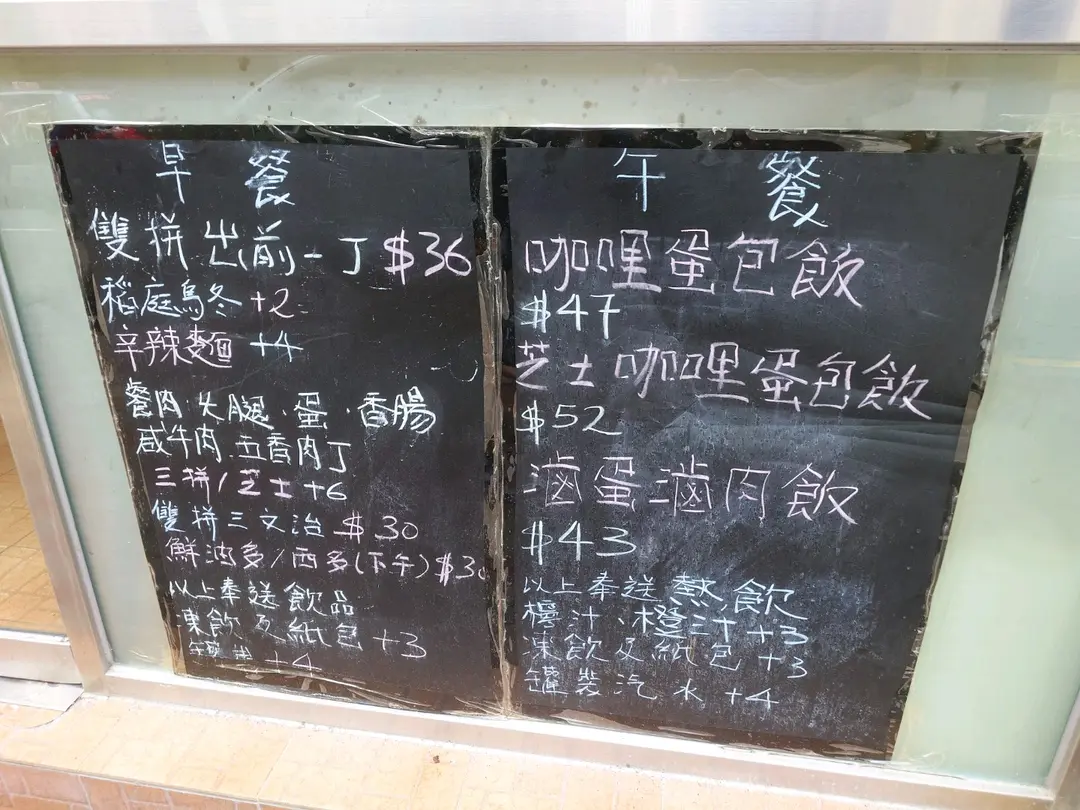 早 餐
雙拼出前一丁 $36
稻庭烏冬 +2
辛辣麵 +4
餐肉．火腿．蛋．香腸
咸牛肉．五香肉丁
三拼/芝士 +6
雙拼三文治 $30
鮮油多/西多(下午) $30
以上奉送飲品
凍飲及紙包 +3
+4
午 餐
咖哩蛋包飯
$47
芝士咖哩蛋包飯
$52
滷蛋滷肉飯
$43
以上奉送熱飲
檸汁．橙汁 +3
凍飲及紙包 +3
罐裝汽水 +4